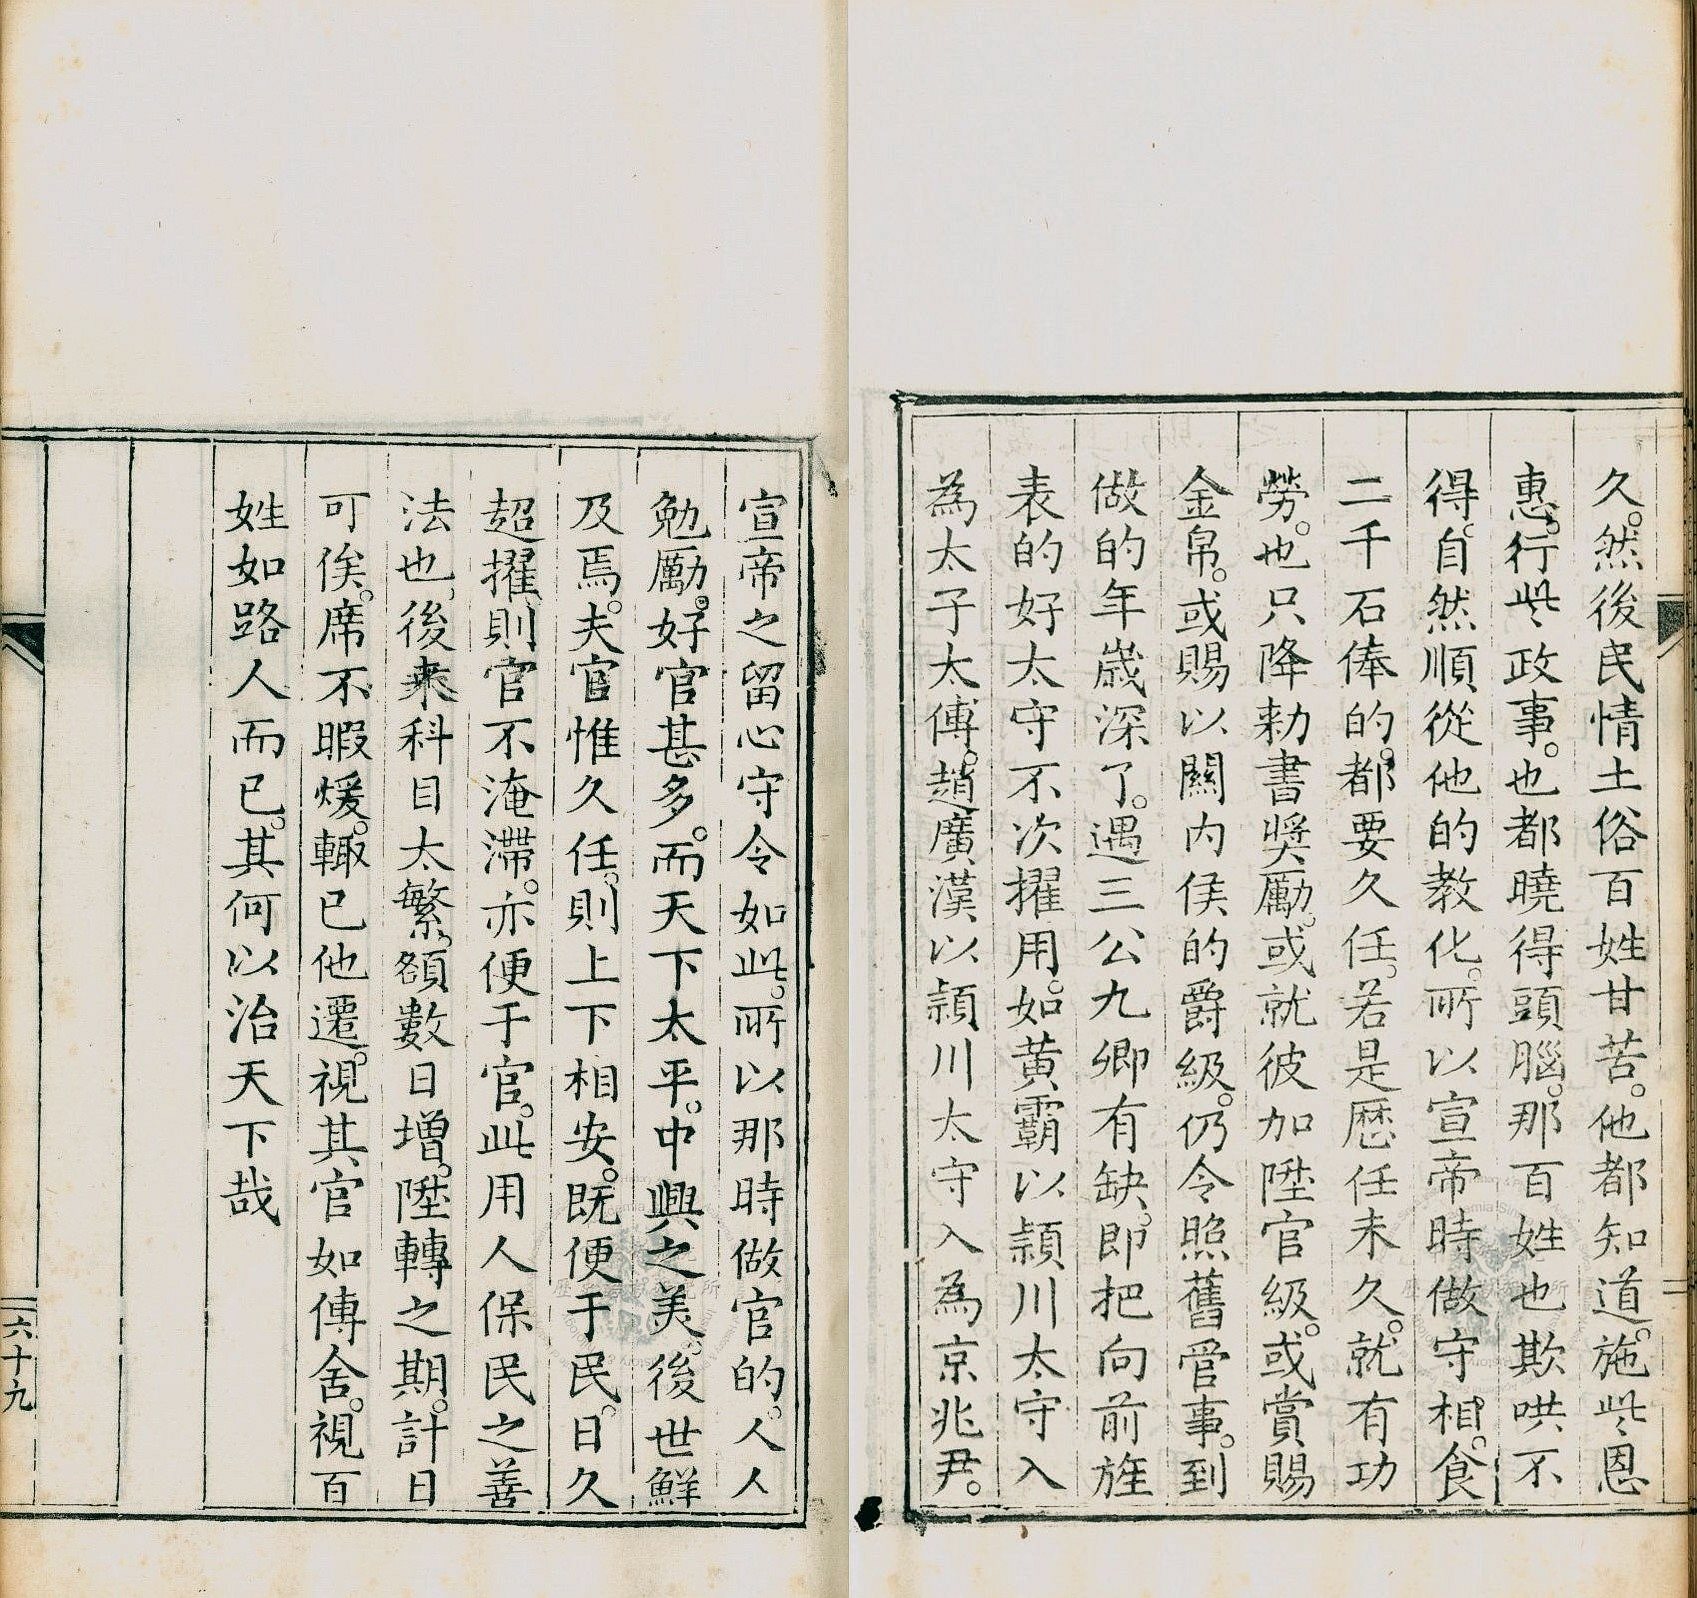 久。然後民情土俗百姓甘苦。他都知道。施些恩
惠。行些政事。也都曉得頭腦。那百姓也欺哄不
得。自然順從他的教化。所以宣帝時做守相。食
二千石俸的。都要久任。若是歷任未久。就有功
勞。也只降勅書獎勵。或就彼加陞官級。或賞賜
金帛。或賜以關內侯的爵級。仍令照舊管事。到
做的年歲深了。遇三公九卿有缺。即把向前旌
表的好太守不次擢用。如黃霸以頴川太守入
為太子太傅。趙廣漢以頴川太守入為京兆尹。
宣帝之留心守令如此。所以那時做官的。人人
勉勵。好官甚多。而天下太平。中興之美。後世鮮
及焉。夫官惟久任。則上下相安。既便于民。日久
超擢。則官不淹滯。亦便于官。此用人保民之善
法也。後來科目太繁。額數日增。陞轉之期。計日
可俟。席不暇煖。輒已他遷。視其官如傳舍。視百
姓如路人而已。其何以治天下哉
六十九